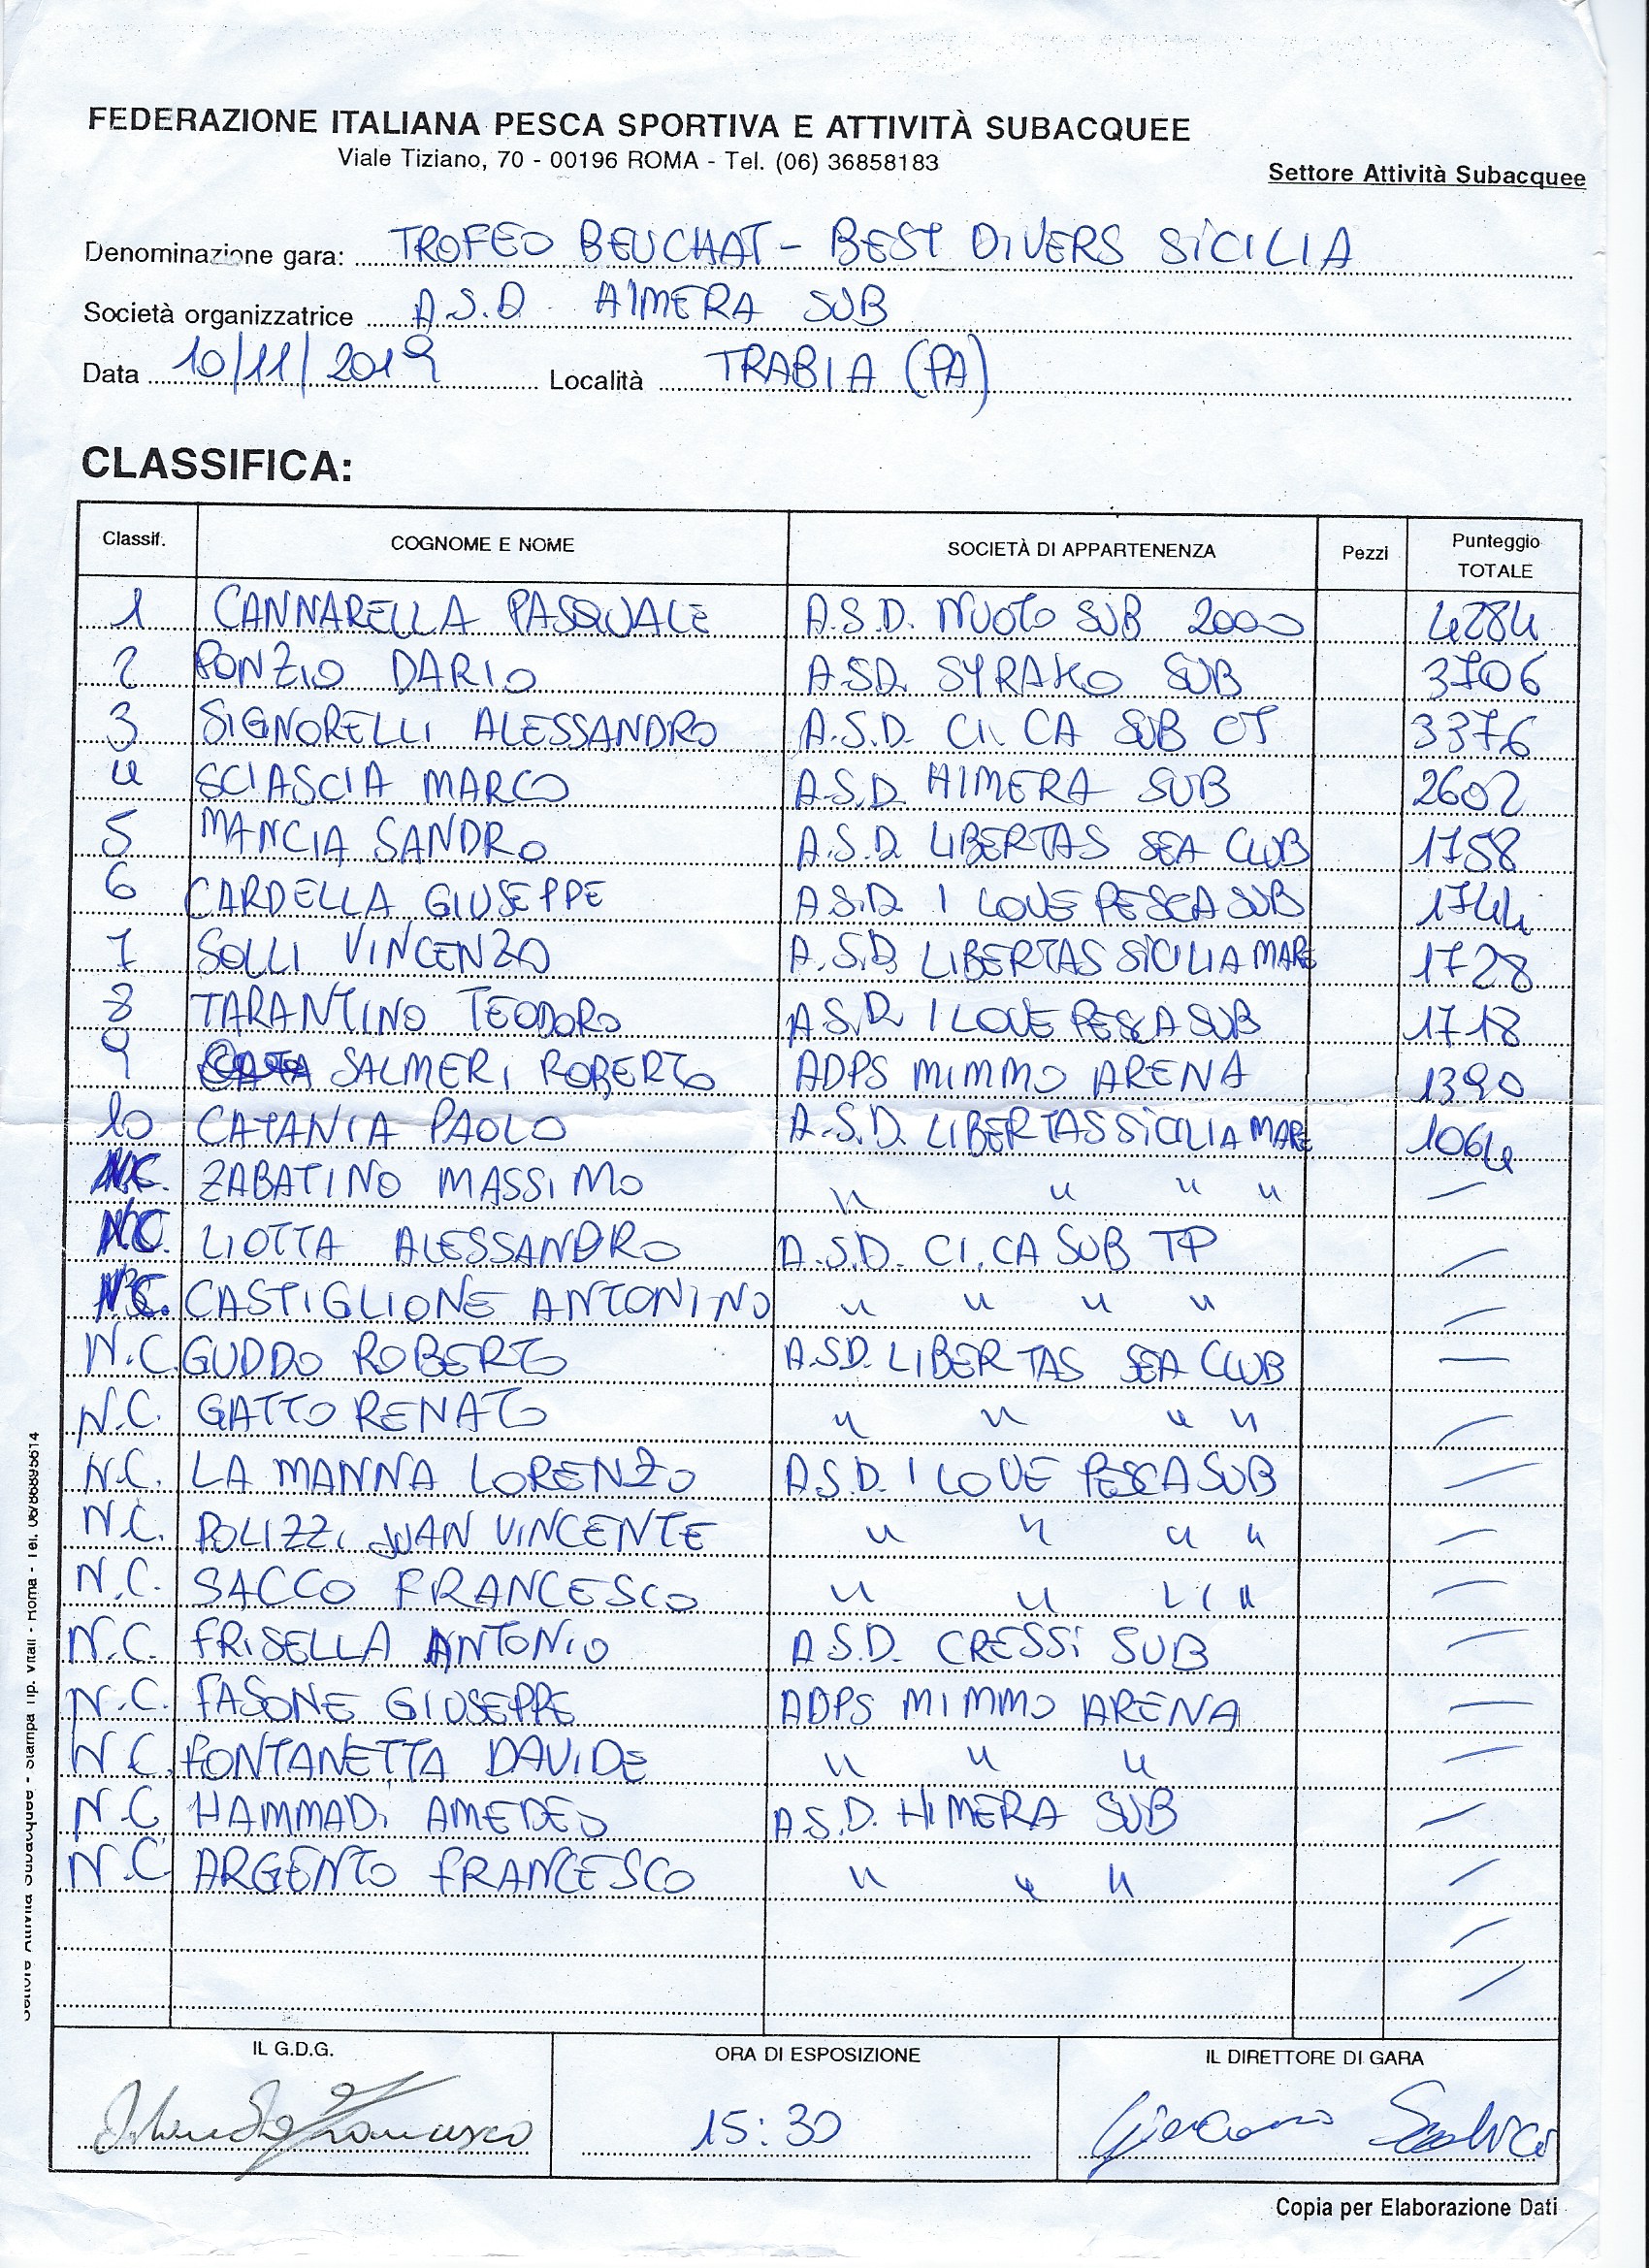 FEDERAZIONE ITALIANA PESCA SPORTIVA E ATTIVITÀ SUBACQUEE
Viale Tiziano, 70 - 00196 ROMA - Tel. (06) 36858183
Settore Attività Subacquee
Denominazione gara: TROFEO BEUCHAT - BEST DIVERS SICILIA
Società organizzatrice A.S.D. HIMERA SUB
Data 10/11/2019 Località TRABIA (PA)
CLASSIFICA:
Classif. COGNOME E NOME SOCIETÀ DI APPARTENENZA Pezzi Punteggio TOTALE
1 CANNARELLA PASQUALE A.S.D. NUOTO SUB 2000 4284
2 PONZIO DARIO A.S.D. SYRAKO SUB 3706
3 SIGNORELLI ALESSANDRO A.S.D. CI. CA SUB CT 3376
4 SCIASCIA MARCO A.S.D. HIMERA SUB 2602
5 MANCIA SANDRO A.S.D. LIBERTAS SEA CLUB 1758
6 CARDELLA GIUSEPPE A.S.D. I LOVE PESCA SUB 1744
7 SOLLI VINCENZO A.S.D. LIBERTAS SICILIA MARE 1728
8 TARANTINO TEODORO A.S.D. I LOVE PESCA SUB 1718
9 SALMERI ROBERTO ADPS MIMMO ARENA 1390
10 CATANIA PAOLO A.S.D. LIBERTAS SICILIA MARE 1064
N.C. ZABATINO MASSIMO " " " " —
N.C. LIOTTA ALESSANDRO A.S.D. CI.CA SUB TP —
N.C. CASTIGLIONE ANTONINO " " " " —
N.C. GUDDO ROBERTO A.S.D. LIBERTAS SEA CLUB —
N.C. GATTO RENATO " " " " —
N.C. LA MANNA LORENZO A.S.D. I LOVE PESCA SUB —
N.C. POLIZZI JUAN VINCENTE " " " " —
N.C. SACCO FRANCESCO " " " " —
N.C. FRISELLA ANTONIO A.S.D. CRESSI SUB —
N.C. FASONE GIUSEPPE ADPS MIMMO ARENA —
N.C. FONTANETTA DAVIDE " " " —
N.C. HAMMADI AMEDEO A.S.D. HIMERA SUB —
N.C. ARGENTO FRANCESCO " " " —
—
—
IL G.D.G. ORA DI ESPOSIZIONE IL DIRETTORE DI GARA
Francesco 15:30 Giacomo
Copia per Elaborazione Dati
Settore Attività Subacquee - Stampa Tip. Vitali - Roma - Tel.